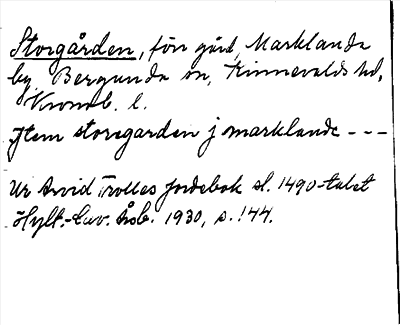 Storgården, förr gård, Marklanda
by, Bergunda sn, Kinnevalds hd,
Kronob. l.
Jtem storegarden j marklande - - -
Ur Arvid Trolles jordebok sl. 1490-talet
Hylt.-Cav. Årsb. 1930, s. 144.